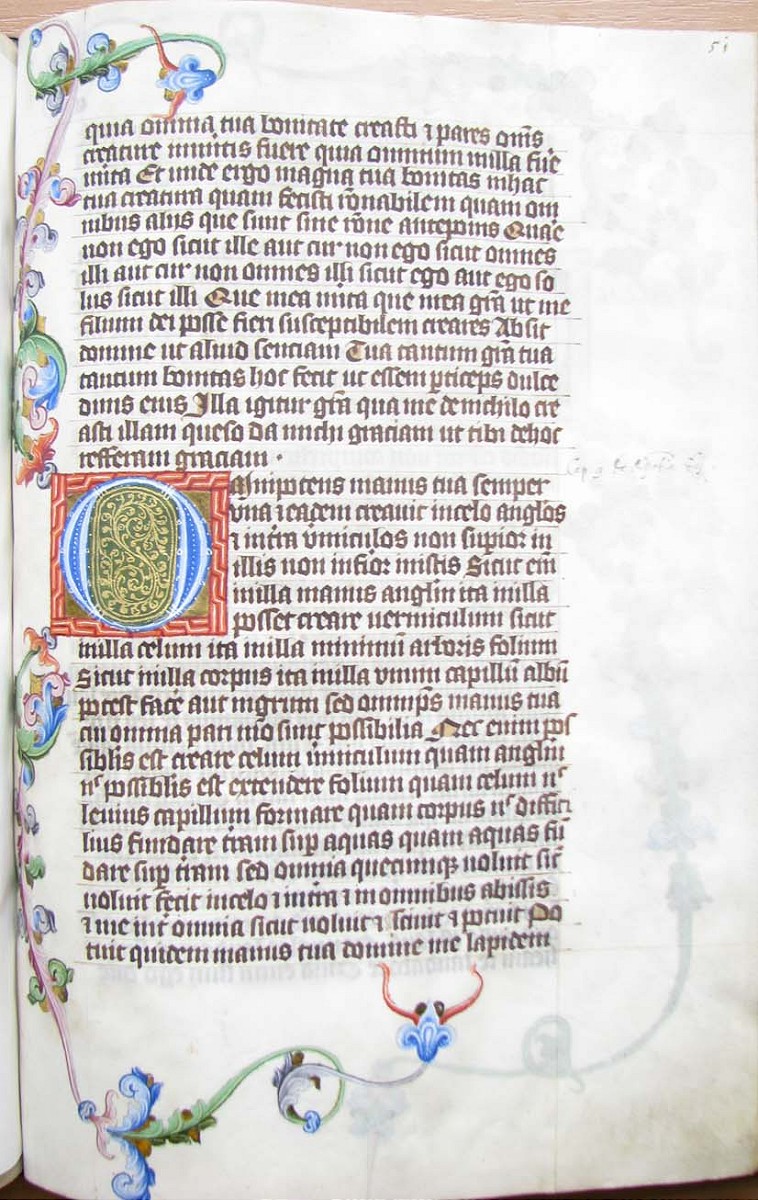 51
quia omnia tua bonitate creasti ⁊ pares om̄s
creature inuitis fuere quia omnium nulla fue
unita Et unde ergo magna tua bonitas in hac
tua creatura quam fecisti rōnabilem quam om
nibus aliis que sunt sine rōne anteponis Quare
non ego sicut ille aut cur non ego sicut omnes
illi aut cur non omnes illi sicut ego aut ego so
lus sicut illi Que mea merita que mea grā ut me
filium dei posse fieri susceptibilem creares Absit
domine ut aliud senciam Tua tantum grā tua
tantum bonitas hoc fecit ut essem pticeps dulce
dinis eius Illa igitur grā qua me de nichilo cre
asti illam queso da michi graciam ut tibi de hoc
refferam graciam
Omnipotens manus tua semper
vna ⁊ eadem creauit in celo anglos
⁊ in tr̄a vmiculos non supior in
illis non infior in istis Sicut em̄
nulla manus anglm̄ ita nulla
posset creare uermiculum sicut
nulla celum ita nulla minimū arboris folium
Sicut nulla corpus ita nulla vnum capillū albū
potest face aut nigrum sed omnip̄s manus tua
cui omnia pari mō sunt possibilia Nec enim pos
siblis est creare celum ūmiculum quam anglm̄
nͨ possiblis est extendere folium quam celum nͨ
leuius capillum formare quam corpus nͨ diffici
lius fundare tr̄am sup aquas quam aquas fū
dare sup tr̄am sed omnia quecumqꝫ uoluit sic̄
uoluit fecit in celo ⁊ in tr̄a ⁊ in omnibus abissis
⁊ me int̄ omnia sicut uoluit ⁊ sciuit ⁊ potuit Po
tuit quidem manus tua domine me lapidem